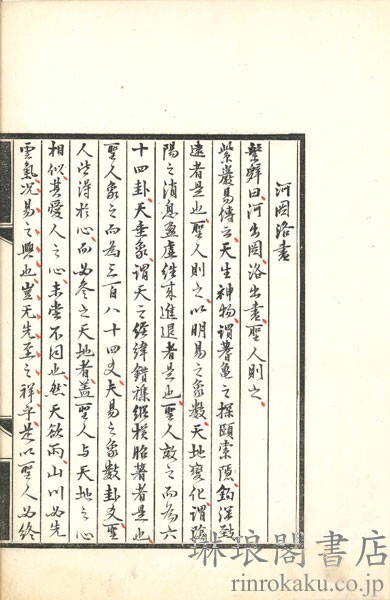 河圖洛書
繫辭曰河出圖洛出書聖人則之
紫巖易傳云天生神物謂蓍龜之探賾索隱鈎深致
遠者是也聖人則之以明易之象數天地變化謂陰
陽之消息盈虛往來進退者是也聖人效之而為六
十四卦天垂象謂天之經緯錯雜縱橫昭著者是也
聖人象之而為三百八十四爻夫易之象數卦爻聖
人皆得於心而必參之天地者蓋聖人與天地之心
相似其愛人之心未嘗不同也然天欲雨山川必先
雲氣況易之興也豈無先至之祥乎是以聖人必終
琳琅閣書店
rinrokaku.co.jp